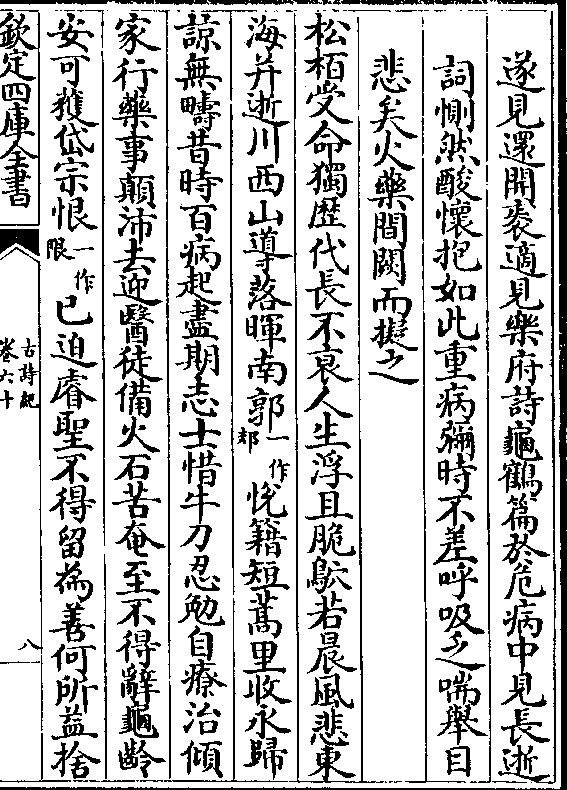 遂見還開袠適見樂府詩龜鶴篇於危病中見長逝
詞惻然酸懷抱如此重病彌時不差呼吸之喘舉目
悲矣火藥間闕而擬之
松栢受命獨歷代長不衰人生浮且脆鴥若晨風悲東
海并逝川西山導落暉南郭一作郄悅籍短蒿里收永歸
諒無疇昔時百病起盡期志士惜牛刀忍勉自療治傾
家行藥事顛沛去迎醫徒備火石苦奄至不得辭龜齡
安可獲岱宗恨一作限已迫睿聖不得留為善何所益捨
欽定四庫全書
古詩紀
卷六十
八